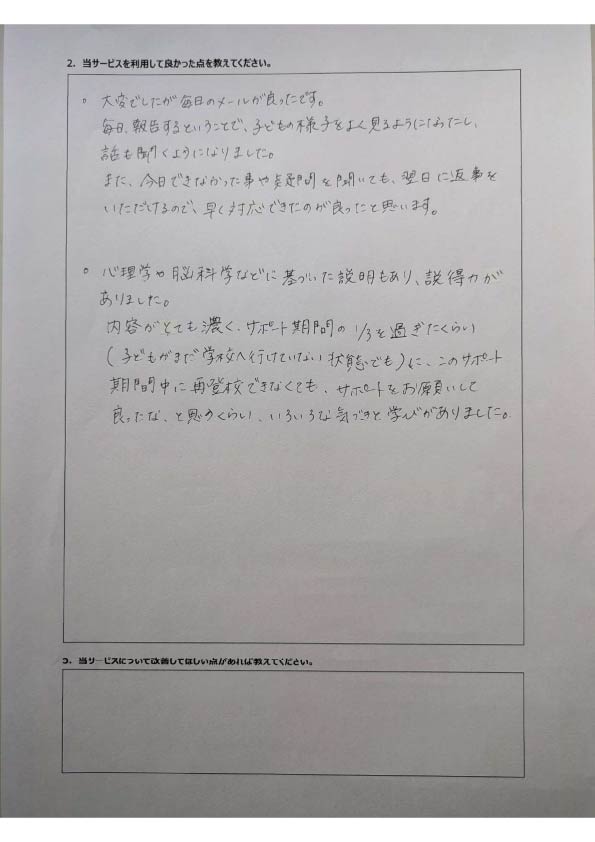 2. 当サービスを利用して良かった点を教えてください。
○ 大変でしたが毎日のメールが良ったです。
毎日、報告するということで、子どもの様子をよく見るようになったし、
話も聞くようになりました。
また、今日できなかった事や疑問を聞いても、翌日に返事を
いただけるので、早く対応できたのが良ったと思います。
○ 心理学や脳科学などに基づいた説明もあり、説得力が
ありました。
内容がとても濃く、サポート期間の1/3を過ぎたくらい
(子どもがまだ学校へ行けていない状態でも)に、このサポート
期間中に再登校できなくても、サポートをお願いして
良ったな、と思うくらい、いろいろな気づきと学びがありました。
3. 当サービスについて改善してほしい点があれば教えてください。